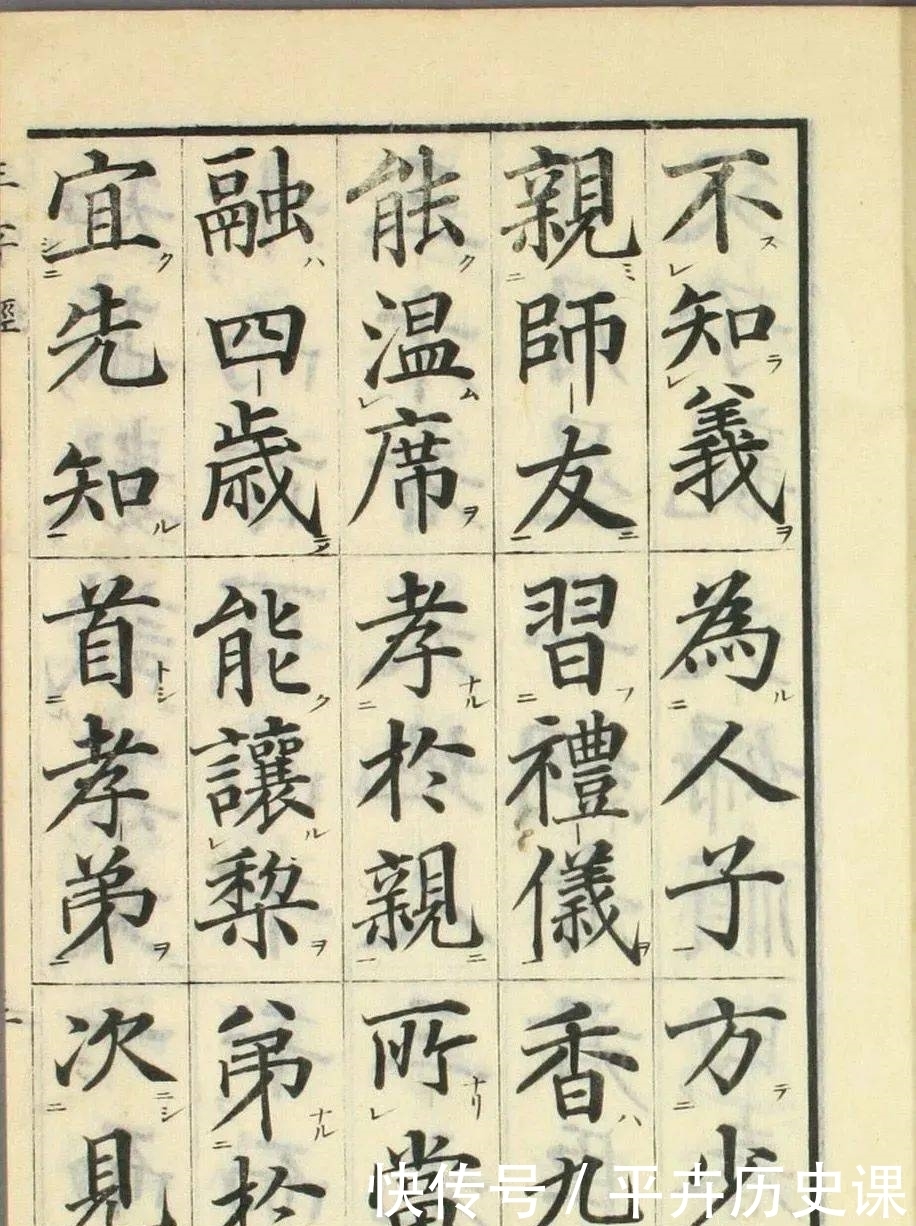 不知義 為人子 方少
親師友 習禮儀 香九
能温席 孝於親 所當
融四歳 能讓梨 弟於
宜先知 首孝弟 次見
三字經
快传号 / 平卉历史课